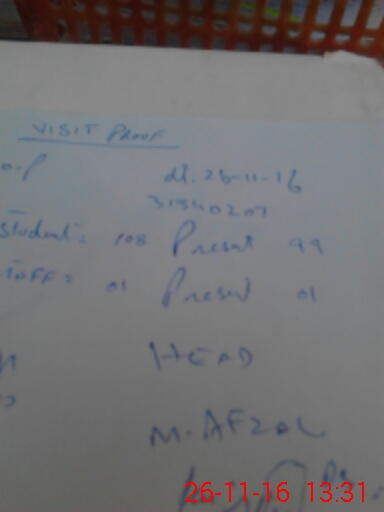 VISIT PROOF
dt. 26-11-16
31540207
Student: 108 Present 99
01 Present 01
HEAD
M. AFZAL
26-11-16 13:31